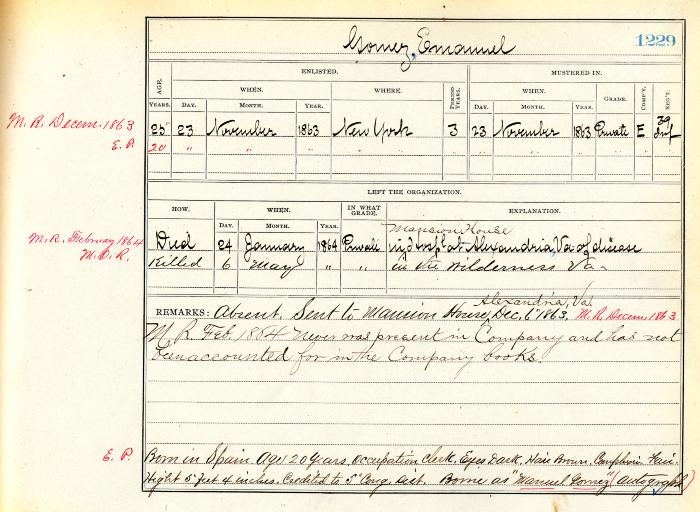 Gomez, Emanuel
1229
ENLISTED.
MUSTERED IN.
AGE.
WHEN.
WHERE.
PERIOD YEARS.
WHEN.
GRADE.
COMP'Y.
REG'T.
YEARS.
DAY.
MONTH.
YEAR.
DAY.
MONTH.
YEAR.
M. R. Decem. 1863
25 23 November 1863 New York 3 23 November 1863 Private E 39 Inf
E. P.
20 " " " " " " " " " " " "
LEFT THE ORGANIZATION.
HOW.
WHEN.
IN WHAT GRADE.
EXPLANATION.
DAY.
MONTH.
YEAR.
Mansion House
M. R. February 1864
Died 24 January 1864 Private in Hosp at Alexandria, Va of disease
M. O. R.
Killed 6 May " " in the Wilderness Va.
Alexandria, Va.
REMARKS: Absent. Sent to Mansion House, Dec. 6 1863. M. R. Decem. 1863
M. R. Feb. 1864 Never was present in Company and has not
been accounted for in the Company books.
E. P.
Born in Spain. Age 20 years. Occupation Clerk. Eyes Dark. Hair Brown. Complexion Fair.
Hight 5 feet 4 inches. Credited to 5" Cong. Dist. Borne as "Manuel Gomez" (autograph)